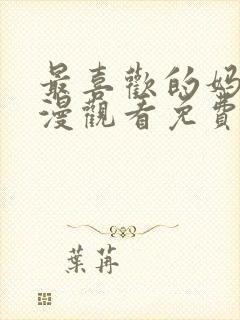 最喜歡的媽
漫觀看免費
葉苒